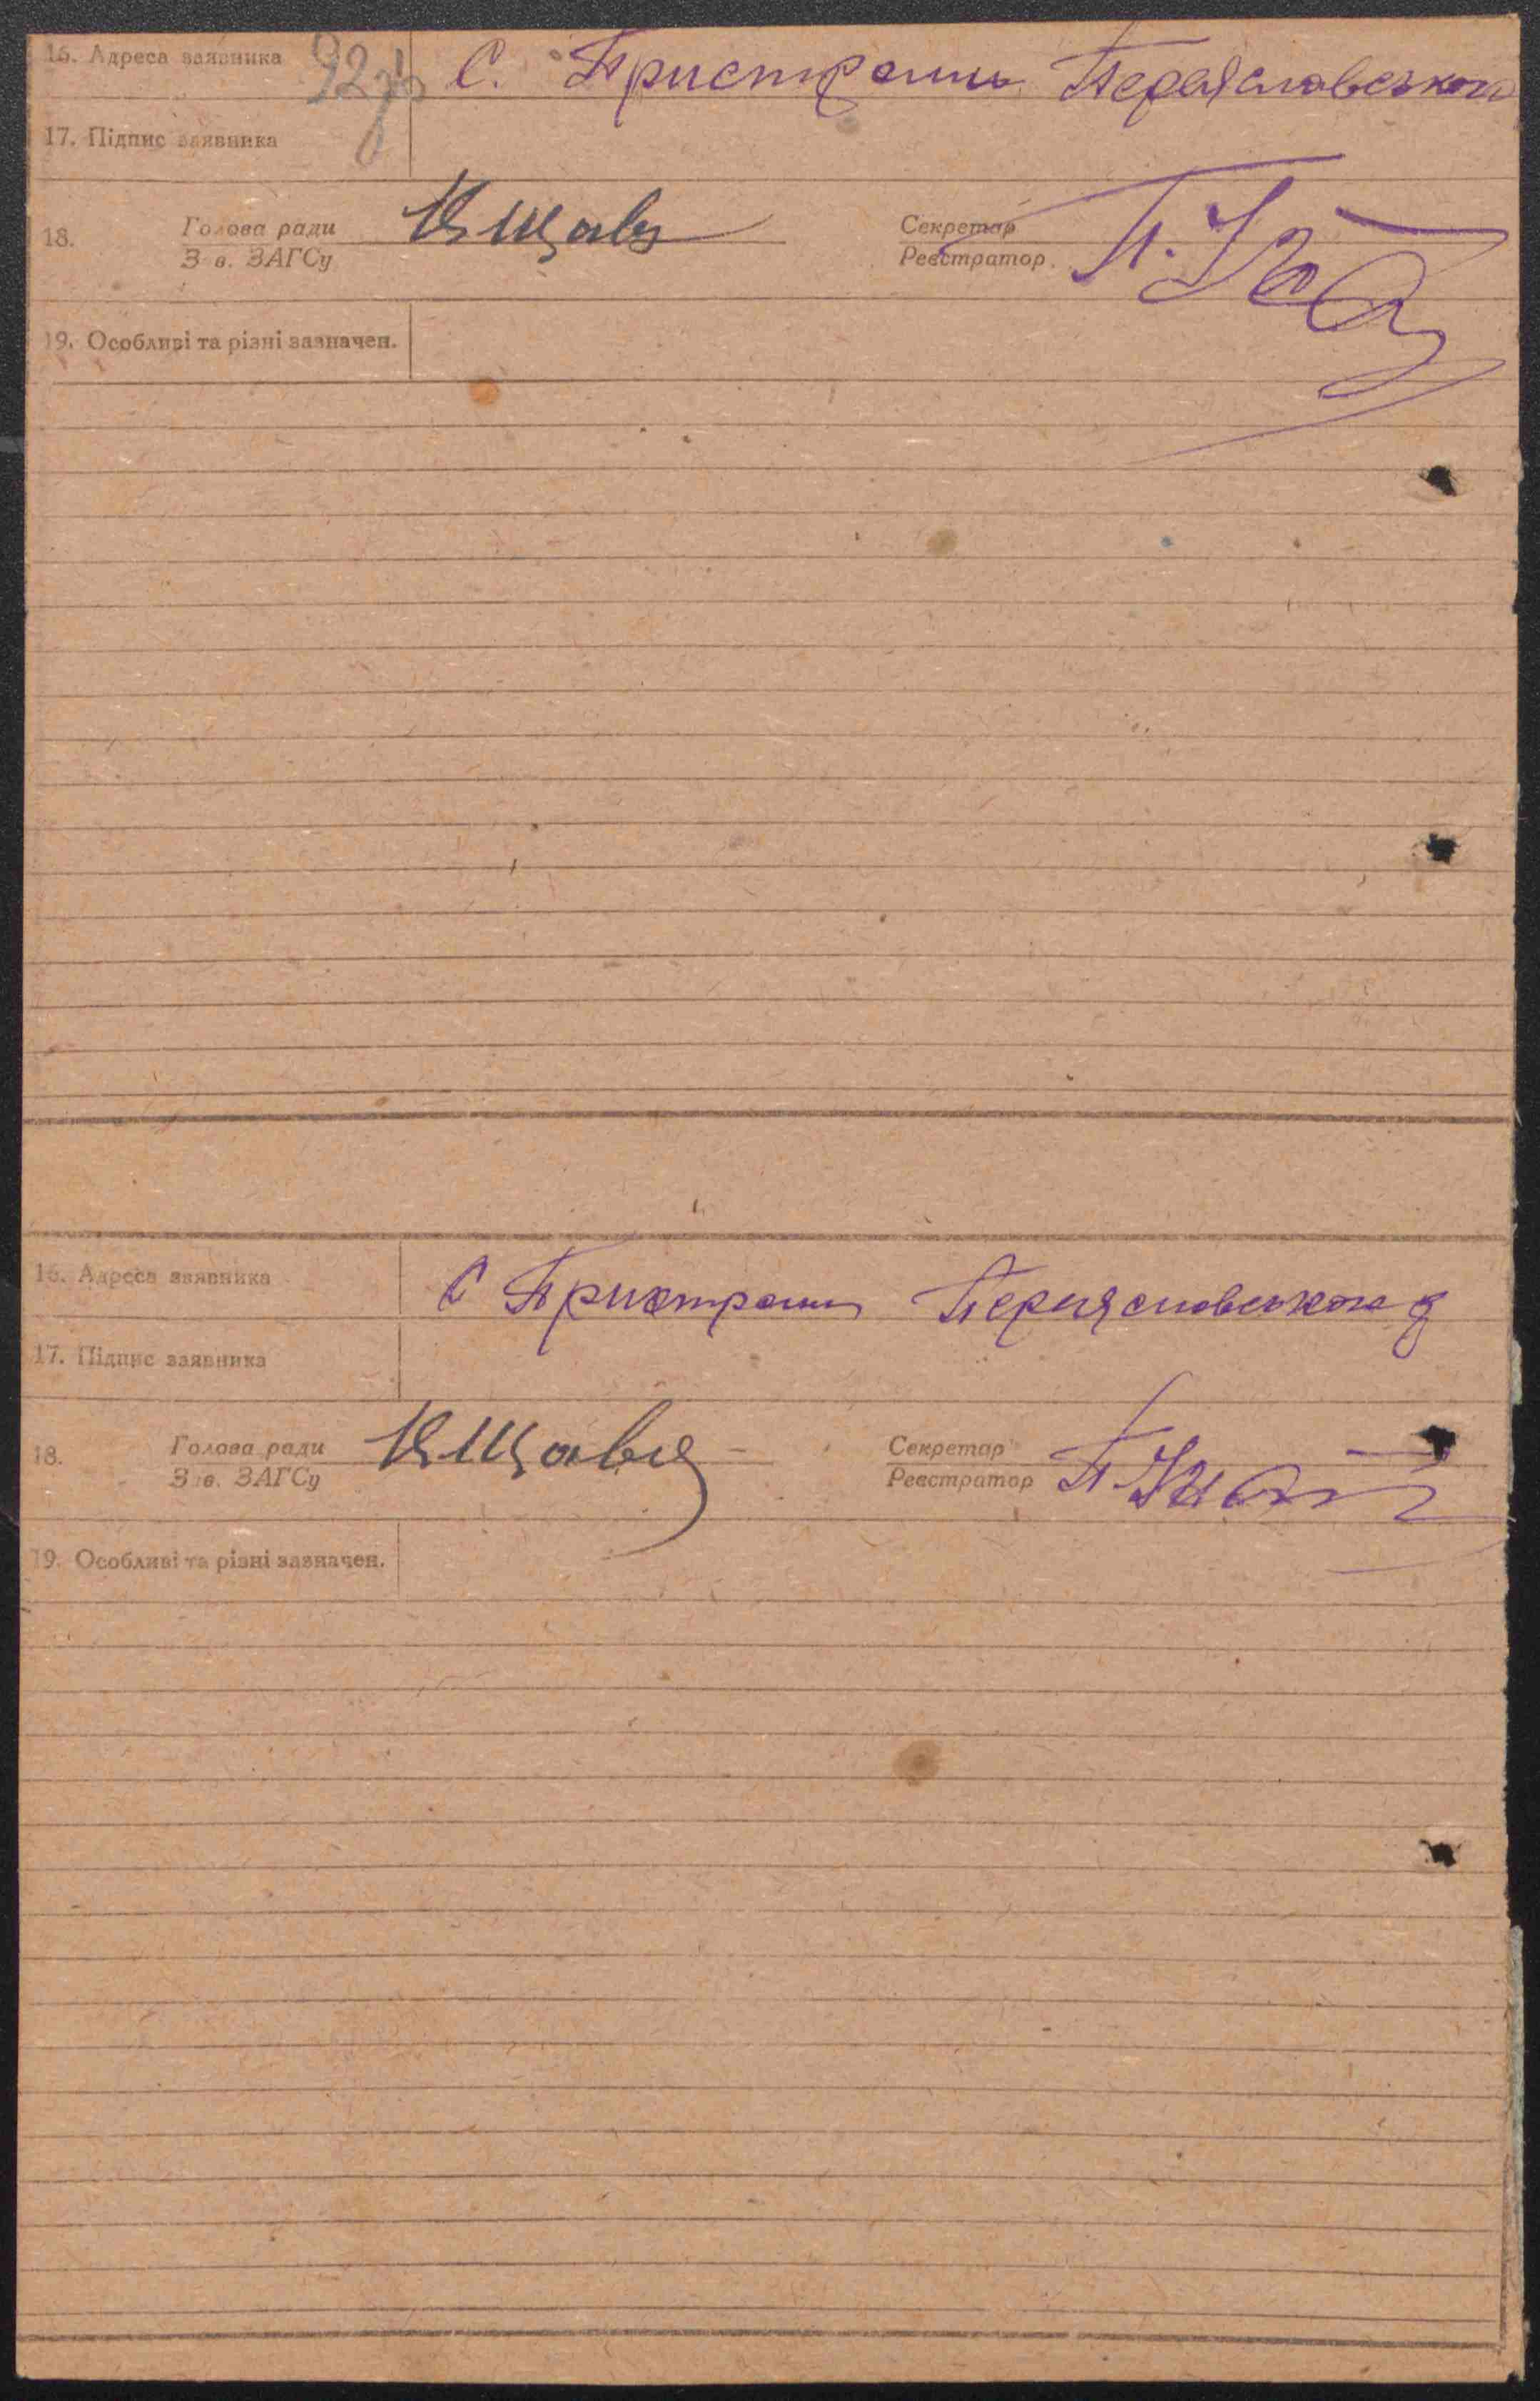 16. Адреса заявника 92зв С. Пристроми Переяславського
17. Підпис заявника
18. Голова ради Секретар
Зав. ЗАГСу Реєстратор
19. Особливі та різні зазначен.
16. Адреса заявника С Пристроми Переяславського
17. Підпис заявника
18. Голова ради Секретар
Зав. ЗАГСу Реєстратор
19. Особливі та різні зазначен.